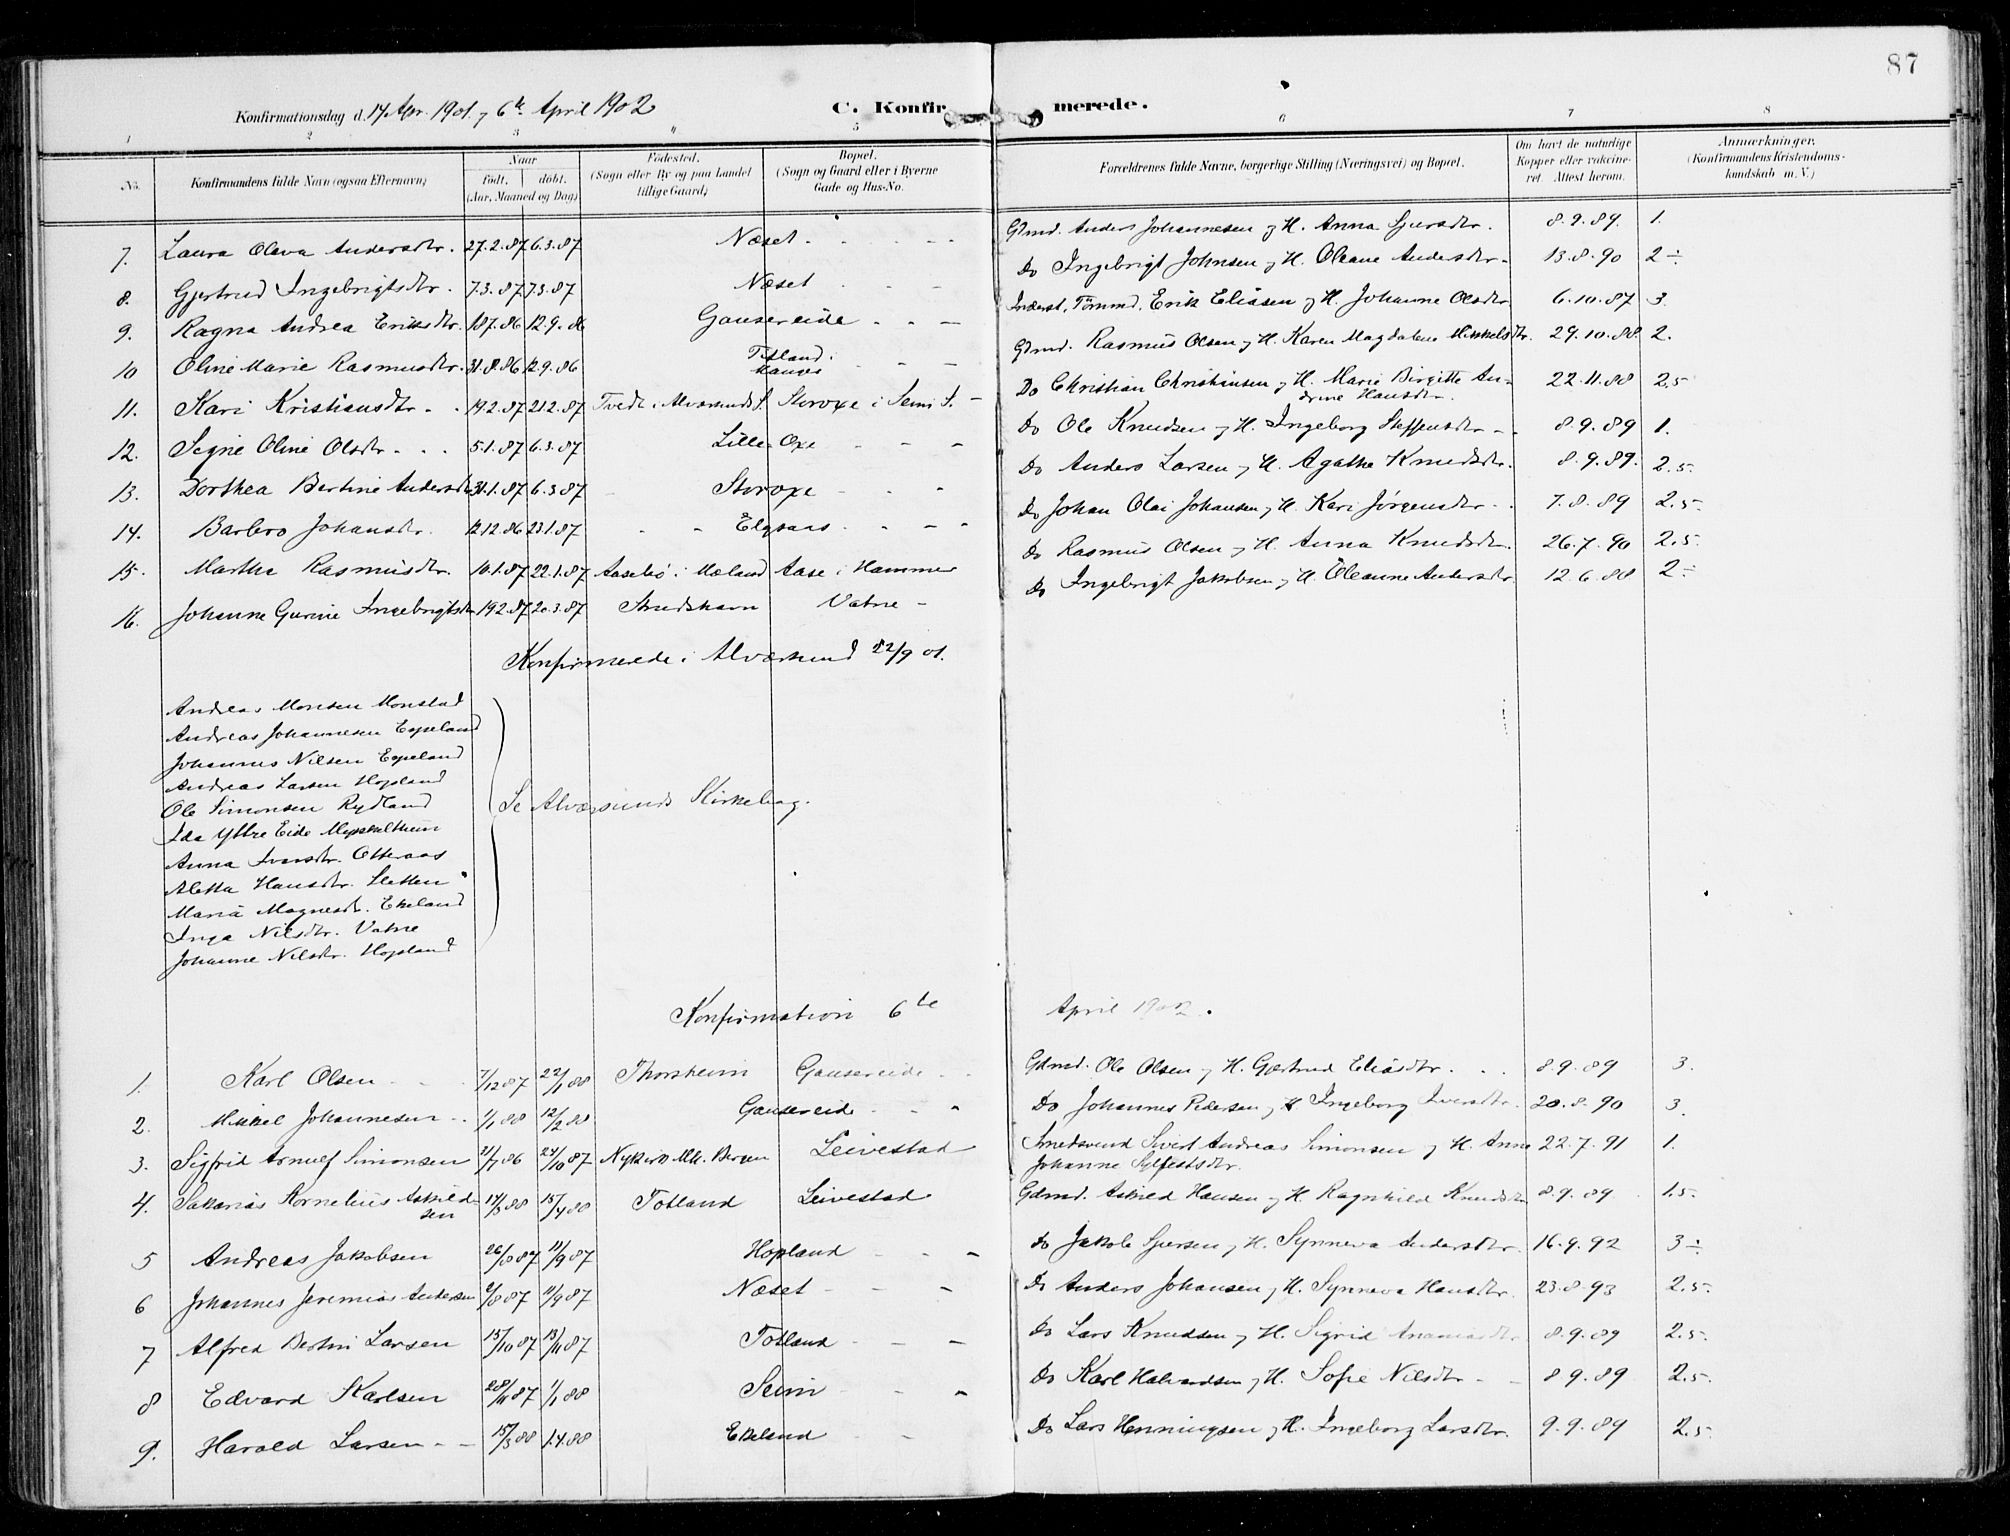 87
Konfirmationsdag d. 14 Apr. 1901 og 6te April 1902 C. Konfirmerede.
1 2 3 4 5 6 7 8
No. Konfirmandens fulde Navn (ogsaa Efternavn) Naar født, døbt. (Aar, Maaned og Dag) Fødested. (Sogn eller By og paa Landet tillige Gaard) Bopæl. (Sogn og Gaard eller i Byerne Gade og Hus-No. Forældrenes fulde Navne, borgerlige Stilling (Næringsvei) og Bopæl. Om havt de naturlige Kopper eller vaccineret. Attest herom. Anmærkninger. (Konfirmandens Kristendomskundskab m. V.)
7. Laura Oleva Andersdtr. 27.2.87 6.3.87 Næset Gdmd. Anders Johannesen og H. Anna Sjursdtr. 8.9.89. 1.
8. Gjertrud Ingebrigtsdtr. 7.3.87 7.3.87 Næset Do Ingebrigt Johnsen og H. Oleane Andersdtr. 13.8.90 2÷
9. Ragna Andrea Eriksdtr. 18.7.86 12.9.86 Gausereide Inderst, Tømmd. Erik Eliasen og H. Johanne Olsdtr. 6.10.87 3.
10 Oline Marie Rasmusdtr. 31.8.86 12.9.86 Titland Manger Gdmd. Rasmus Olsen og H. Karen Magdalene Mikkelsdtr. 29.10.88. 2.
11. Kari Kristiansdtr. 19.2.87 21.2.87 Tvedt i Alversunds S. Storoxe i Seim S. Do Christian Christiansen og H. Marie Birgitte Andrine Hansdtr. 22.11.88 2.5
12. Signe Oline Olsdtr. 5.1.87 6.3.87 Lille Oxe Do Ole Knudsen og H. Ingeborg Steffensdtr. 8.9.89 1.
13. Dorthea Bertine Andersdtr. 31.1.87 6.3.87 Storoxe Do Anders Larsen og H. Agathe Knudsdtr. 8.9.89. 2.5.
14. Barbro Johansdtr. 12.12.86 23.1.87 Elgsaas Do Johan Olai Johansen og H. Kari Jørgensdtr. 7.8.89 2.5.
15. Martha Rasmusdtr. 10.1.87 22.1.87 Aasebø i Mæland Aase i Hammer Do Rasmus Olsen og H. Anna Knudsdtr. 26.7.90 2.5.
16. Johanne Gurine Ingebrigtsdtr 19.2.87 20.3.87 Smedshavn Vatne Do Ingebrigt Jakobsen og H. Oleanne Andersdtr. 12.6.88 2÷
Konfirmerede i Alversund 22/9 01.
Andreas Monsen Monstad
Andreas Johannesen Espeland
Johannes Nilsen Espeland
Andreas Larsen Hopland
Ole Simonsen Rydland
Se Alversunds Kirkebog.
Ida Yttre Eide
Anna Iversdtr. Otteraas
Aletta Hansdtr. Sletten
Maria Magnesdtr. Ekeland
Inga Nilsdtr. Vatne
Johanne Nilsdtr. Hopland
Konfirmation 6te April 1902.
1. Karl Olsen 7/12 87 22/1 88 Thorsheim Gausereide Gdmd. Ole Olsen og H. Gjertrud Eliasdtr. 8.9.89 3.
2. Mikkel Johannesen 1/1 88 12/2 88 Gausereide Do Johannes Pedersen og H Ingeborg Iversdtr. 20.8.90 3.
3. Sigfrid Arnulf Simonsen 21/7 86 24/10 87 Nykirk. Mh. Bergen Leivestad Smedsvend Sivert Andreas Simonsen og H. Anna Johanne Sylfestsdtr. 22.7.91 1.
4. Sakarias Kornelius Askildsen 17/3 88 15/4 88 Totland Leivestad Gdmd. Askild Hansen og H Ragnhild Knudsdtr 8.9.89 1.5.
5 Andreas Jakobsen 26/8 87 11/9 87 Hopland Do Jakob Sjursen og H. Synneva Andersdtr. 16.9.92 3÷
6 Johannes Jeremias Andersen 2/8 87 11/9 87 Næset Do Anders Johansen og H. Synneva Hansdtr. 23.8.93 2.5.
7 Alfred Bertin Larsen 15/10 87 13/11 87 Totland Do Lars Knudsen og H. Sigrid Ananiasdtr 8.9.89 2.5.
8 Edvard Karlsen 28/11 87 1/1 88 Seim Do Karl Halvardsen og H. Sofie Nilsdtr. 8.9.89 2.5.
9. Harald Larsen 15/3 88 1.4.88 Ekeland Do Lars Henningsen og H. Ingeborg Larsdtr. 9.9.89 2.5.